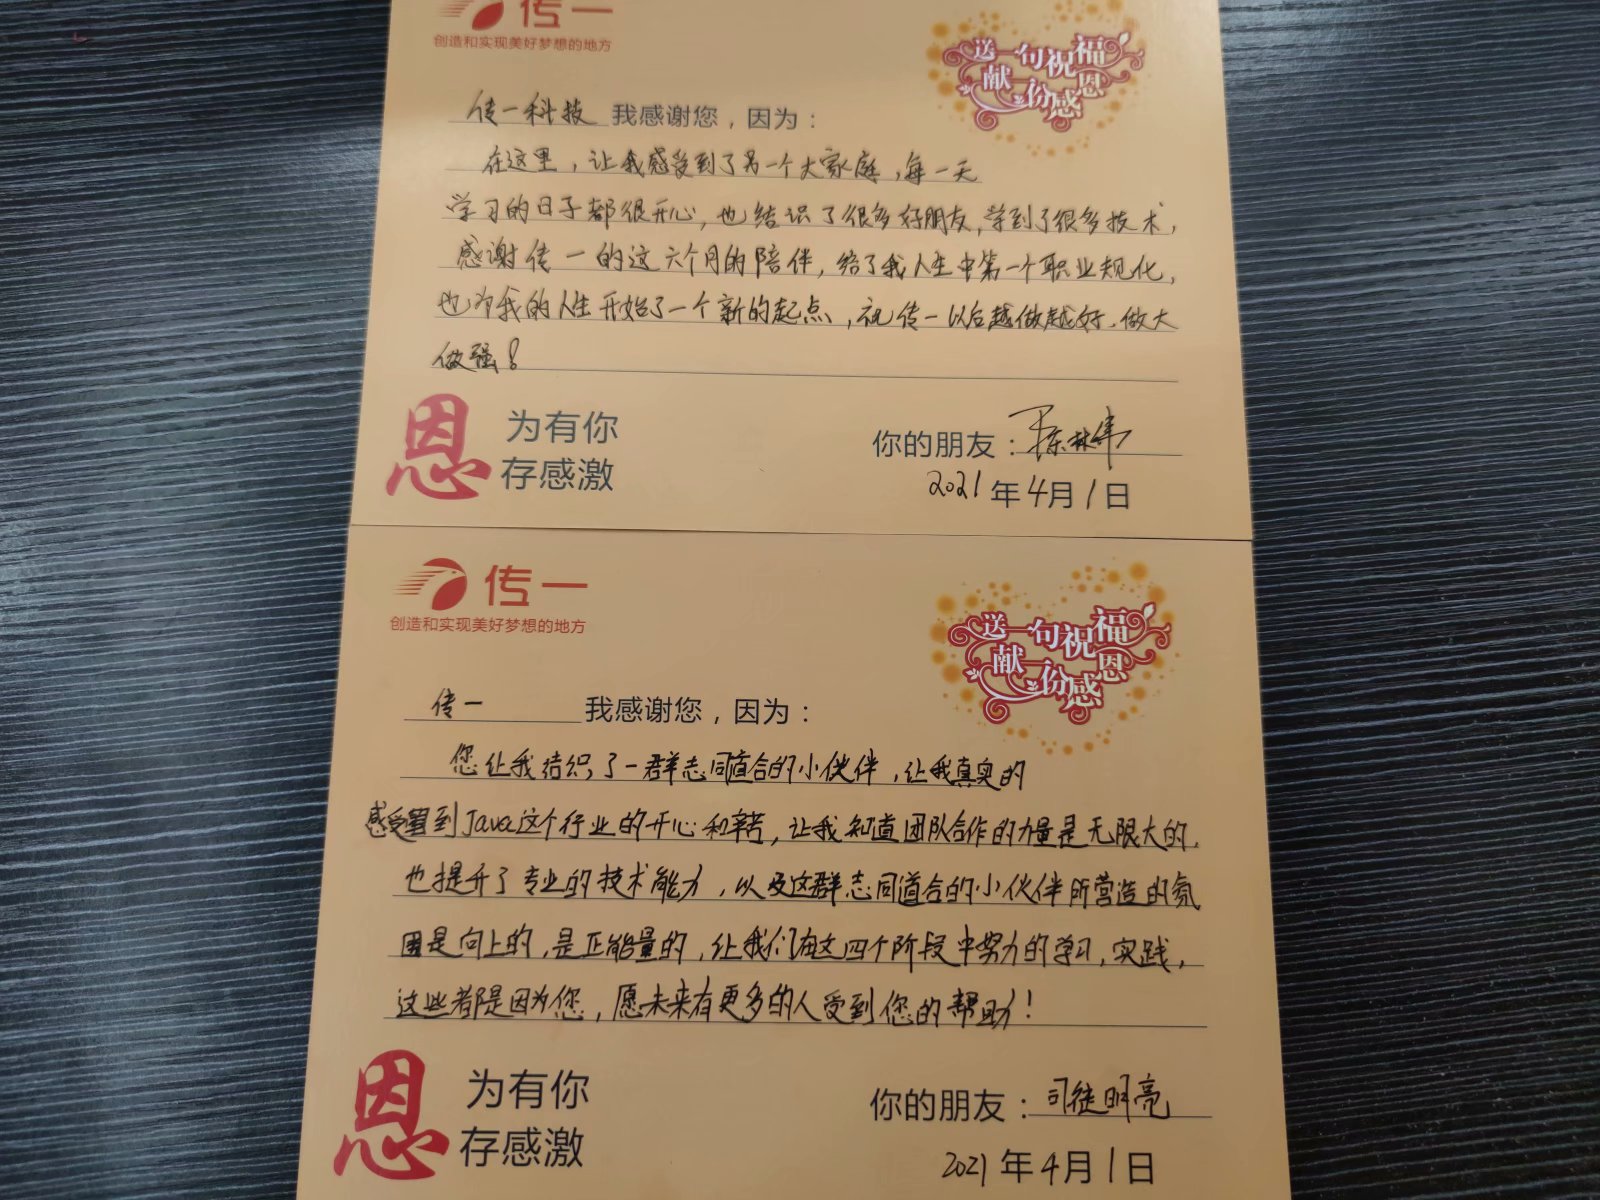 传一
创造和实现美好梦想的地方
送一句祝福
献一份感恩
传一科技 我感谢您，因为：
在这里，让我感受到了另一个大家庭，每一天
学习的日子都很开心，也结识了很多好朋友，学到了很多技术，
感谢传一的这六个月的陪伴，给了我人生中第一个职业规化，
也为我的人生开始了一个新的起点，祝传一以后越做越好，做大
做强！
恩 为有你
存感激
你的朋友：陈林伟
2021年4月1日
传一
创造和实现美好梦想的地方
送一句祝福
献一份感恩
传一 我感谢您，因为：
您让我结识了一群志同道合的小伙伴，让我真实的
感受到Java这个行业的开心和辛苦，让我知道团队合作的力量是无限大的，
也提升了专业的技术能力，以及这群志同道合的小伙伴所营造的氛
围是向上的，是正能量的，让我们在这四个阶段中努力的学习，实践，
这些都是因为您，愿未来有更多的人受到您的帮助！
恩 为有你
存感激
你的朋友：司徒明亮
2021年4月1日